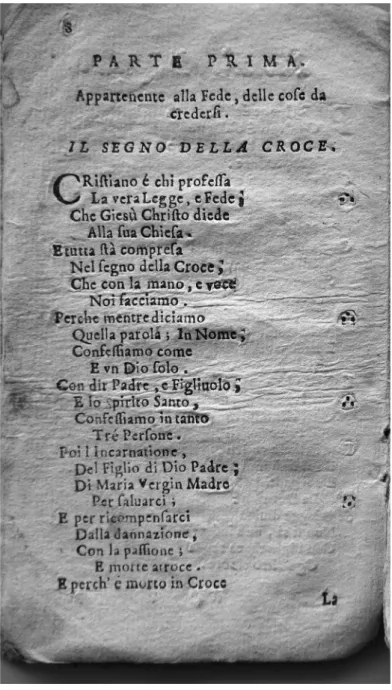 8
PARTE PRIMA.
Appartenente alla Fede, delle coſe da
crederſi.
IL SEGNO DELLA CROCE.
CRiſtiano é chi profeſſa
La vera Legge, e Fede;
Che Giesù Chriſto diede
Alla ſua Chieſa.
E tutta ſtà compreſa
Nel ſegno della Croce;
Che con la mano, e voce
Noi facciamo.
Perche mentre diciamo
Quella parola; In Nome;
Confeſſiamo come
E vn Dio ſolo.
Con dir Padre, e Figliuolo;
E lo ſpirito Santo,
Confeſſiamo in tanto
Tré Perſone.
Poi l Incarnatione,
Del Figlio di Dio Padre;
Di Maria Vergin Madre
Per ſaluarci;
E per ricompenſarci
Dalla dannazione,
Con la paſſione;
E morte atroce.
E perch' é morto in Croce
La